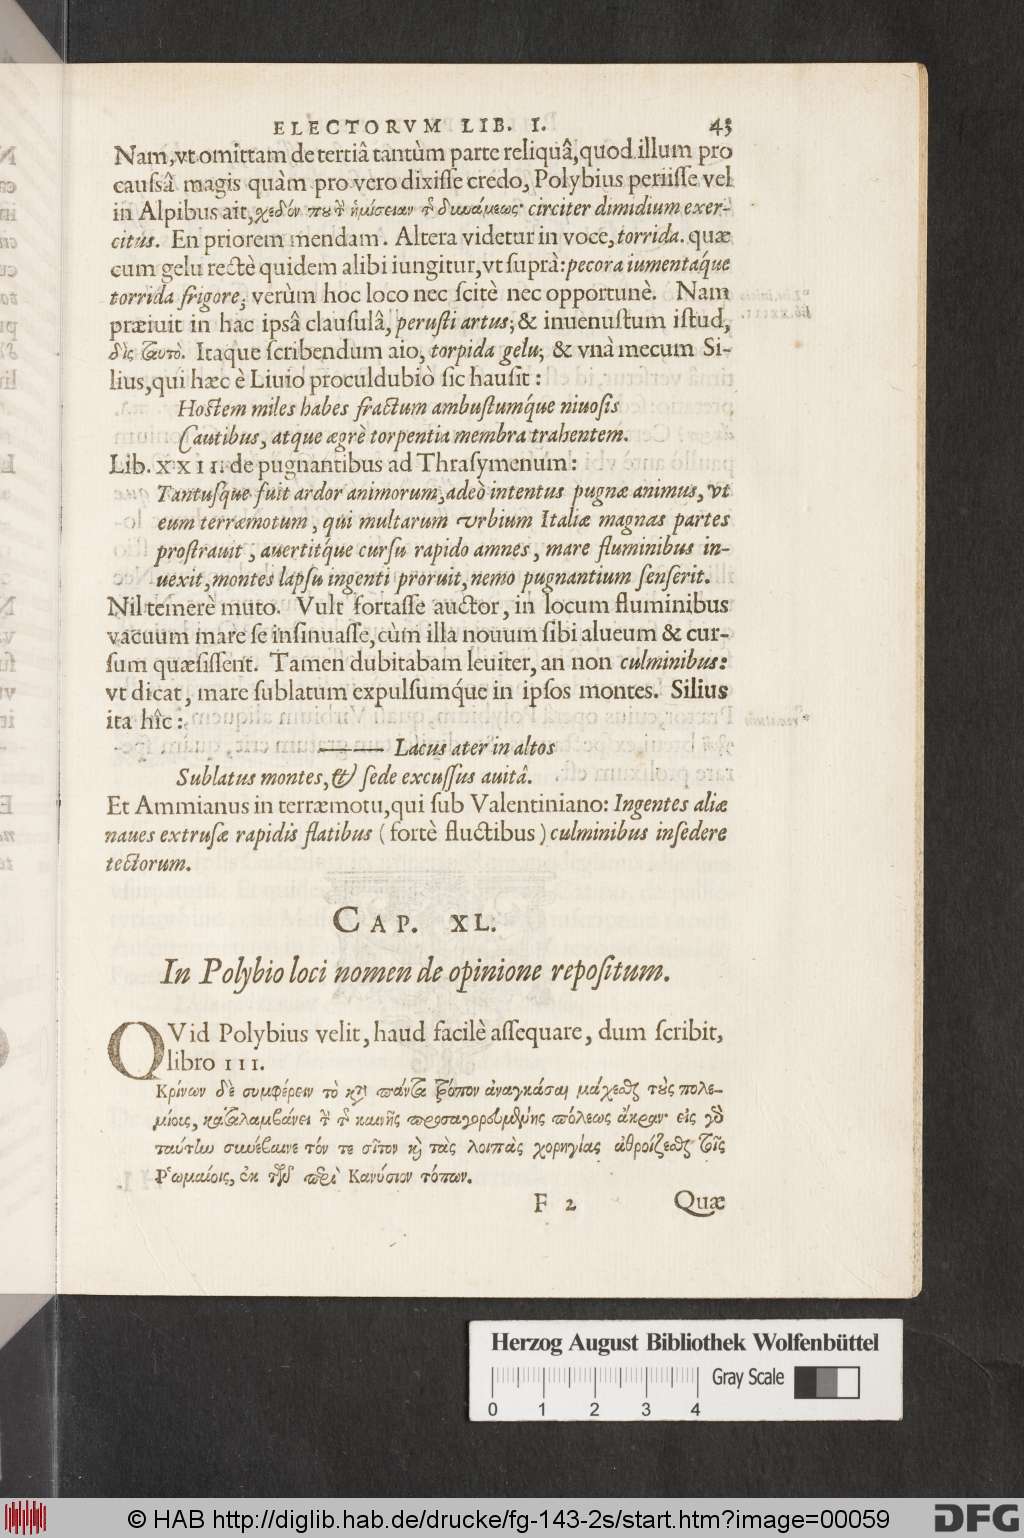 ELECTORVM LIB. I. 43
Nam, vt omittam de tertiâ tantùm parte reliquâ, quod illum pro
caussâ magis quàm pro vero dixisse credo, Polybius periisse vel
in Alpibus ait, χεδόν που τ ἡμίσειαν τ δυνάμεως· circiter dimidium exer-
citus. En priorem mendam. Altera videtur in voce, torrida. quæ
cum gelu rectè quidem alibi iungitur, vt suprà: pecora iumentaq́ue
torrida frigore; verùm hoc loco nec scitè nec opportunè. Nam
præiuit in hac ipsâ clausulâ, perusti artus; & inuenustum istud,
δὶς ταυτὸ. Itaque scribendum aio, torpida gelu; & vnà mecum Si-
lius, qui hæc è Liuio proculdubiò sic hausit:
Hostem miles habes fractum ambustumq́ue niuosis
Cautibus, atque ægrè torpentia membra trahentem.
Lib. XXII. de pugnantibus ad Thrasymenum:
Tantusque fuit ardor animorum, adeò intentus pugnæ animus, vt
eum terræmotum, qui multarum vrbium Italiæ magnas partes
prostrauit, auertitq́ue cursu rapido amnes, mare fluminibus in-
uexit, montes lapsu ingenti proruit, nemo pugnantium senserit.
Nil temerè muto. Vult fortasse auctor, in locum fluminibus
vacuum mare se insinuasse, cùm illa nouum sibi alueum & cur-
sum quæsissent. Tamen dubitabam leuiter, an non culminibus:
vt dicat, mare sublatum expulsumq́ue in ipsos montes. Silius
ita hîc:
——— Lacus ater in altos
Sublatus montes, & sede excussus auitâ.
Et Ammianus in terræmotu, qui sub Valentiniano: Ingentes aliæ
naues extrusæ rapidis flatibus (fortè fluctibus) culminibus insedere
tectorum.
CAP. XL.
In Polybio loci nomen de opinione repositum.
QVid Polybius velit, haud facilè assequare, dum scribit,
libro III.
Κρίνων δὲ συμφέρειν τὸ κτ πάντα τρόπον ἀναγκάσαι μάχεσθ τοὺς πολε-
μίοις, καταλαμβάνει τ τ καινῆς προσαγορευμένης πόλεως ἄκραν· εἰς γδ
ταύτω συνέβαινε τόν τε σῖτον κ τὰς λοιπὰς χορηγίας ἀθροίζεσθ τοῖς
Ῥωμαίοις, ἐκ τῶν περὶ Κανύσιον τόπων.
F 2 Quæ
Herzog August Bibliothek Wolfenbüttel
Gray Scale
0 1 2 3 4
© HAB http://diglib.hab.de/drucke/fg-143-2s/start.htm?image=00059
DFG